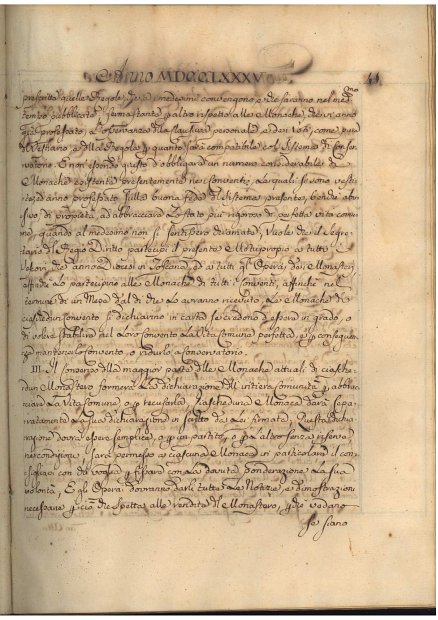 Anno MDCCLXXXV. 41
prescritto quelle Regole, che ai medesimi convengono, e che saranno nel med.mo
tempo pubblicate, fermo stante p altro rispetto alle Monache, che vi anno
già professato, l'osservanza della Clausura personale, e dei voti, come pure
il Vestiario, e della Regola p quanto sarà compatibile col sistema di Conser-
vatorio. E non essendo giusto di obbligare un numero considerabile di
Monache esistenti presentemente nei Conventi, le quali si sono vesti-
te, ed anno professato sulla buona fede del sistema presente, benchè abu-
sivo, di proprietà, ad abbracciare lo stato più rigoroso di perfetta vita comu-
ne, quando al medesimo non si sentissero chiamate, Vuole che il Segre-
tario del Regio Diritto partecipi il presente Motuproprio a tutti i
Vescovi, che anno Diocesi in Toscana, ed a tutti gl'Operai dei Monasteri,
affinchè lo partecipino alle Monache di tutti i Conventi, affinchè nel
termine di un Mese dal dì che lo avranno ricevuto, le Monache di
ciaschedun Convento si dichiarino in carta se credono d'essere in grado, o
di voler stabilire nel loro Convento la Vita Comune perfetta, e p conseguen-
za mantenerlo Convento, o ridurlo a Conservatorio.
III. Il consenso della maggior parte delle Monache attuali di ciasche-
dun Monastero formerà la dichiarazione dell'intiera Comunità p abbrac-
ciare la Vita Comune, o p recusarla. Ciascheduna Monaca darà sepa-
ratamente la sua dichiarazione in scritto da Lei firmata; Questa dichia-
razione dovrà essere semplice, o p un partito, o p l'altro senza riserva,
nè condizione. Sarà permesso a ciascuna Monaca in particolare il con-
sigliarsi con chi voglia p fissare con la dovuta ponderazione la sua
volontà, E gli Operai dovranno darli tutte le Notizie, e dimostrazioni
necessarie p ciò che spetta alle rendite del Monastero, p che vedano
se siano